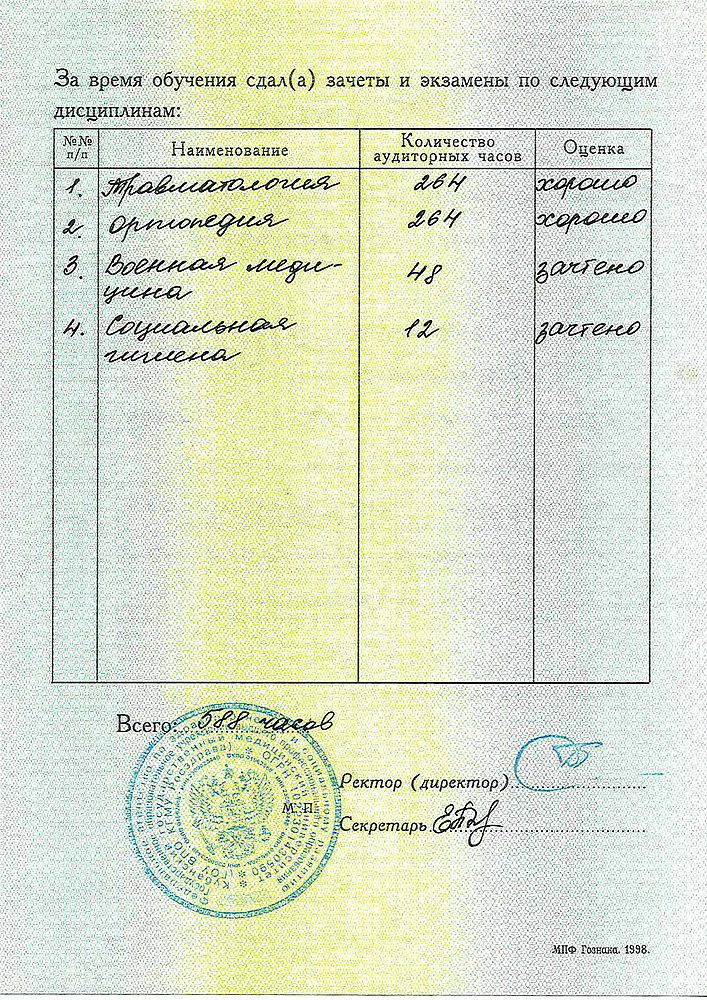 За время обучения сдал(а) зачеты и экзамены по следующим
дисциплинам:
№№ п/п Наименование Количество аудиторных часов Оценка
1. Травматология 264 хорошо
2. Ортопедия 264 хорошо
3. Военная меди-
цина 48 зачтено
4. Социальная
гигиена 12 зачтено
Всего: 588 часов
Ректор (директор)
М. П.
Секретарь
МПФ Гознака. 1998.